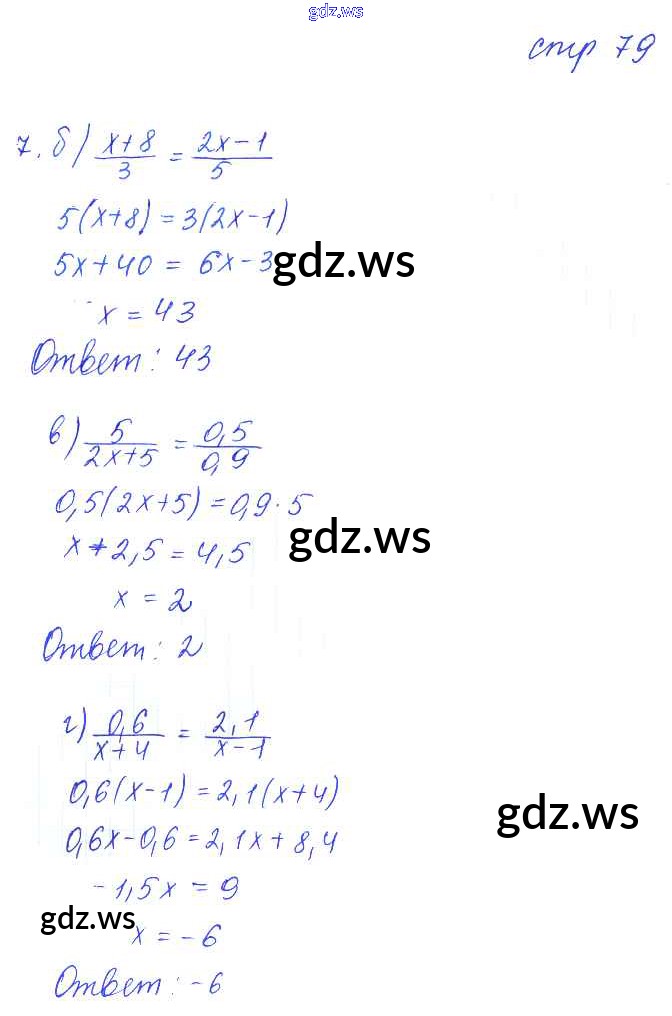 gdz.ws
стр 79
7. б) x+8/3 = 2x-1/5
5(x+8) = 3(2x-1)
5x+40 = 6x-3 gdz.ws
x = 43
Ответ: 43
в) 5/2x+5 = 0,5/0,9
0,5(2x+5) = 0,9·5
gdz.ws
x+2,5 = 4,5
x = 2
Ответ: 2
г) 0,6/x+4 = 2,1/x-1
0,6(x-1) = 2,1(x+4)
gdz.ws
0,6x-0,6 = 2,1x+8,4
-1,5x = 9
gdz.ws
x = -6
Ответ: -6